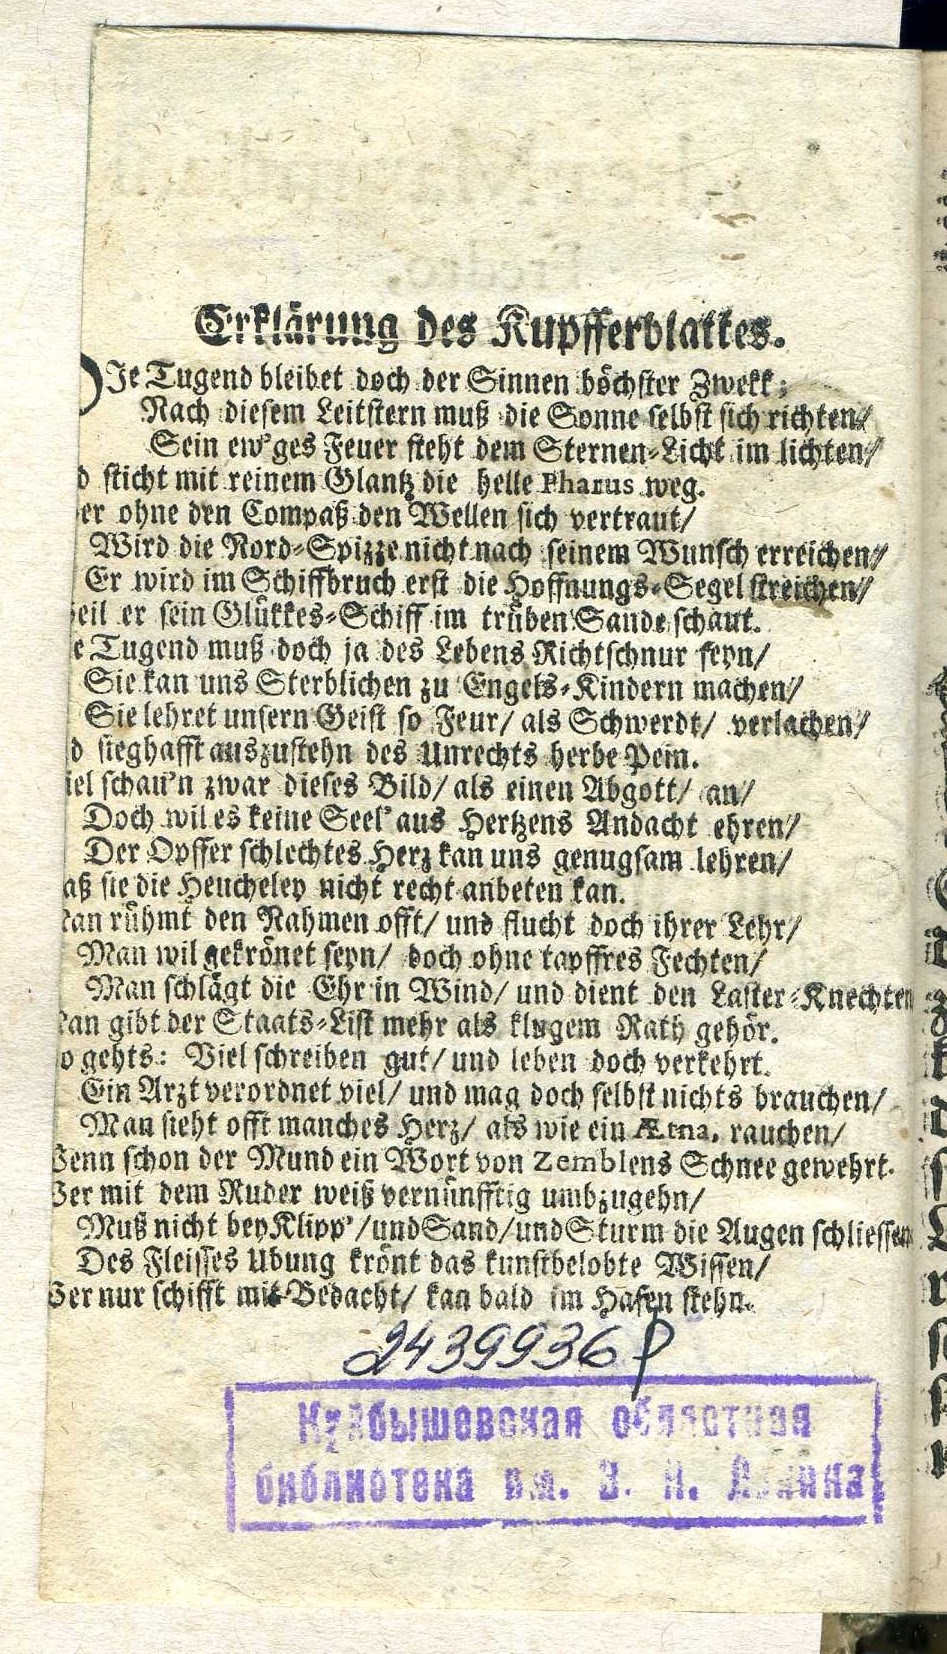 Erklärung des Kupfferblattes.
DJe Tugend bleibet doch der Sinnen höchster Zwekk;
Nach diesem Leitstern muß die Sonne selbst sich richten/
Sein ew'ges Feuer steht dem Sternen-Licht im lichten/
d sticht mit reinem Glantz die helle Pharus weg.
er ohne den Compaß den Wellen sich vertraut/
Wird die Nord-Spizze nicht nach seinem Wunsch erreichen/
Er wird im Schiffbruch erst die Hoffnungs-Segel streichen/
eil er sein Glükkes-Schiff im trüben Sande schaut.
e Tugend muß doch ja des Lebens Richtschnur seyn/
Sie kan uns Sterblichen zu Engels-Kindern machen/
Sie lehret unsern Geist so Feur/ als Schwerdt/ verlachen/
d sieghafft auszustehn des Unrechts herbe Pein.
iel schau'n zwar dieses Bild/ als einen Abgott/ an/
Doch wil es keine Seel' aus Hertzens Andacht ehren/
Der Opffer schlechtes Herz kan uns genugsam lehren/
aß sie die Heucheley nicht recht anbeten kan.
an rühmt den Nahmen offt/ und flucht doch ihrer Lehr/
Man wil gekrönet seyn/ doch ohne tapffres Fechten/
Man schlägt die Ehr in Wind/ und dient den Laster-Knechten
an gibt der Staats-List mehr als klugem Rath gehör.
o gehts: Viel schreiben gut/ und leben doch verkehrt.
Ein Arzt verordnet viel/ und mag doch selbst nichts brauchen/
Man sieht offt manches Herz/ als wie ein Ætna, rauchen/
Wenn schon der Mund ein Wort von Zemblens Schnee gewehrt.
Wer mit dem Ruder weiß vernünfftig umbzugehn/
Muß nicht bey Klipp'/und Sand/und Sturm die Augen schliessen
Des Fleisses Ubung krönt das kunstbelobte Wissen/
Wer nur schifft mit Bedacht/ kan bald im Hafen stehn.
2439936 р
Куйбышевская областная
библиотека им. В. И. Ленина